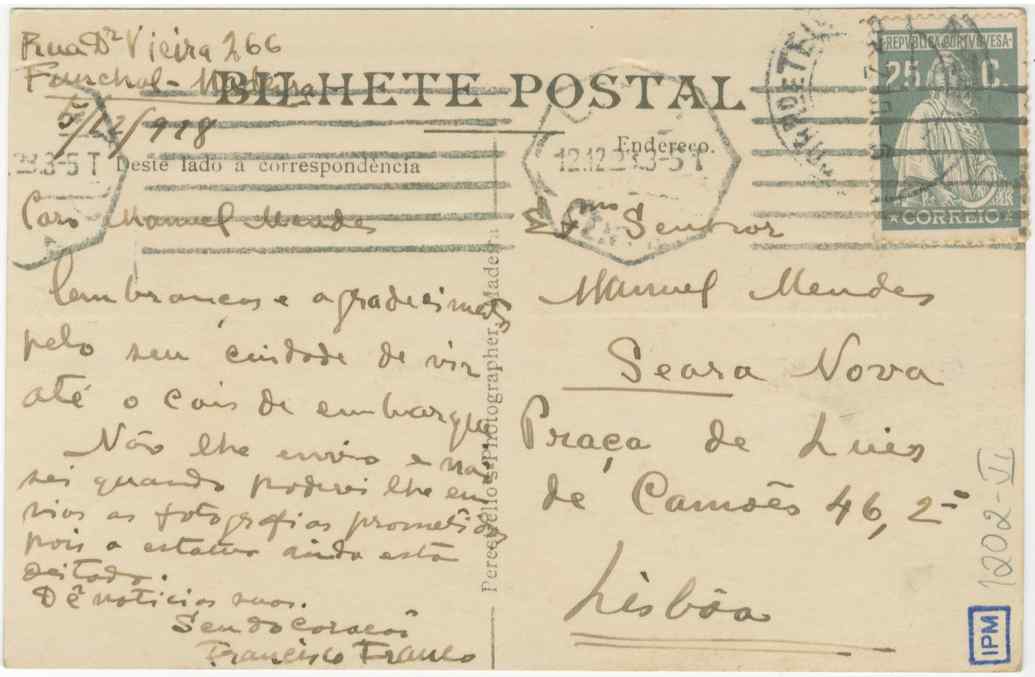 Rua Dr Vieira 266
Funchal - Madeira
5/12/928
BILHETE POSTAL
Deste lado a correspondência
Endereço.
12.12 3-5 T
REPUBLICA PORTUGUESA
25 C.
CORREIO
Caro Manuel Mendes
Lembranças e agradecimentos
pelo seu cuidado de vir
até o cais de embarque
Não lhe envio e não
sei quando poderei lhe en
viar as fotografias prometidas
pois a estatua ainda está
deitada.
Dê noticias suas.
Seu do coração
Francisco Franco
Perestrello's Photographer, Madeira
Exmo Senhor
Manuel Mendes
Seara Nova
Praça de Luis
de Camões 46, 2º
Lisbôa
1202-VI
IPM